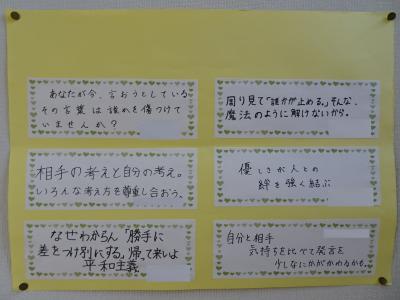 あなたが今、言おうとしている
その言葉は誰かを傷つけて
いませんか?
周り見て「誰かが止める。」そんな、
魔法のように解けないから。
相手の考えと自分の考え。
いろんな考え方を尊重し合おう。
優しさが人との
絆を強く結ぶ
なぜわからん「勝手に
差をつけ別にする」帰って来いよ
平和主義
自分と相手
気持ちを比べて発言を
少しなにかがかわるかも。